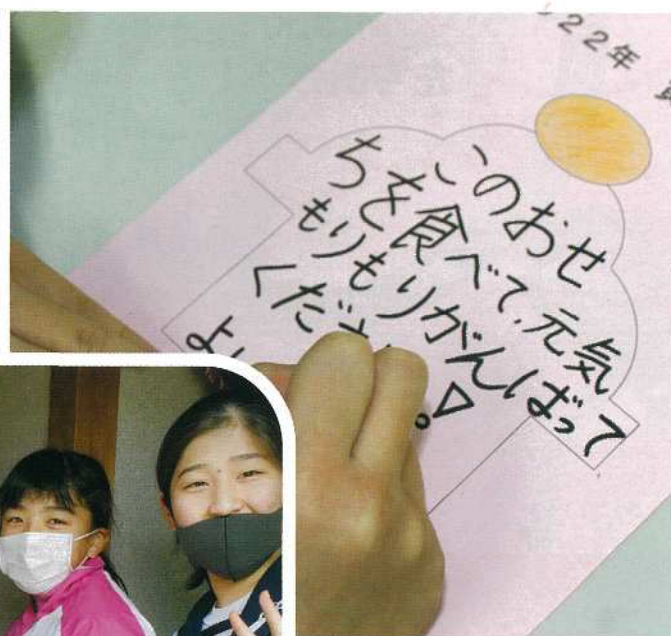 22年
このおせ
ちを食べて、元気
もりもりがんばって
くださ
よ